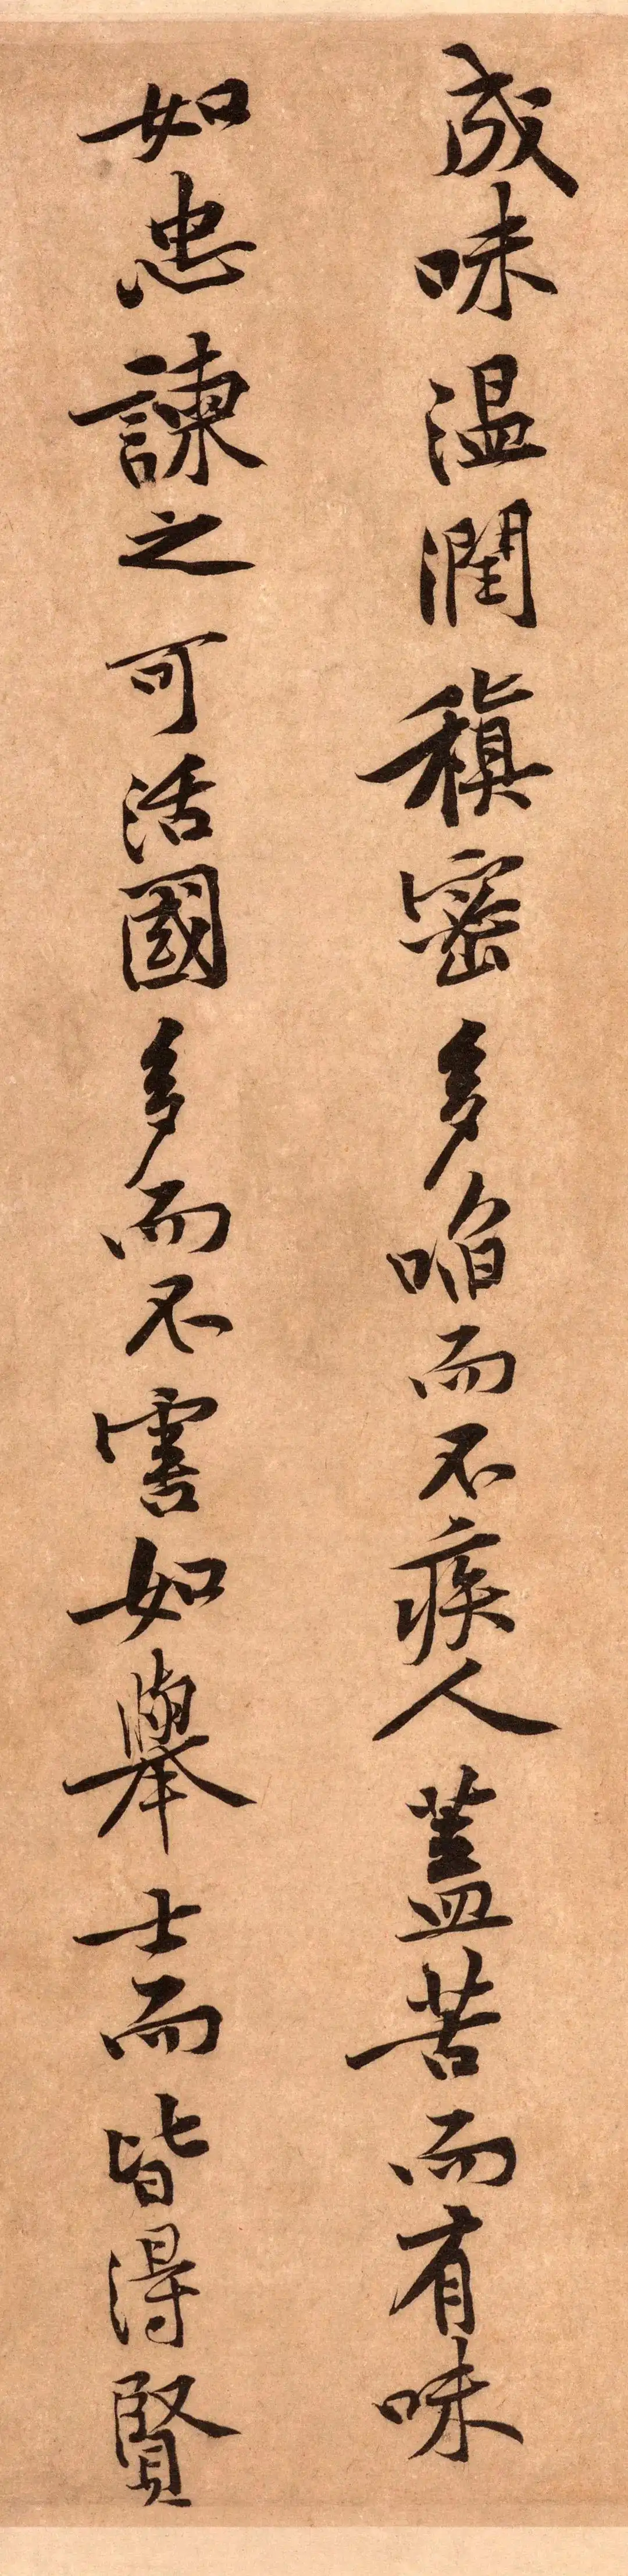 成味温潤稹密多啗而不疾人蓋苦而有味
如忠諫之可活國多而不害如舉士而皆得賢